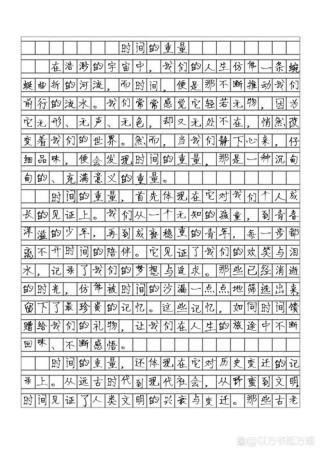 时间的重量
在浩渺的宇宙中，我们的人生仿佛一条蜿
蜒曲折的河流，而时间，便是那不断推动我们
前行的流水。我们常常感觉它轻若无物，因为
它无形、无声、无色，却又无处不在，悄然改
变着我们的世界。然而，当我们静下心来，仔
细品味，便会发现时间的重量，那是一种沉甸
甸的、充满意义的重量。
时间的重量，首先体现在它对我们个人成
长的见证上。我们从一个无知的孩童，到青春
洋溢的少年，再到成熟稳重的青年，每一步都
离不开时间的陪伴。它见证了我们的欢笑与泪
水，记录了我们的梦想与追求。那些已经消逝
的时光，仿佛被时间的沙漏一点点地筛选出来
留下了最珍贵的记忆。这些记忆，如同时间馈
赠给我们的礼物，让我们在人生的旅途中不断
回味、不断感悟。
时间的重量，还体现在它对历史变迁的记
录上。从远古时代到现代社会，从野蛮到文明
时间见证了人类文明的兴衰与变迁。那些古老